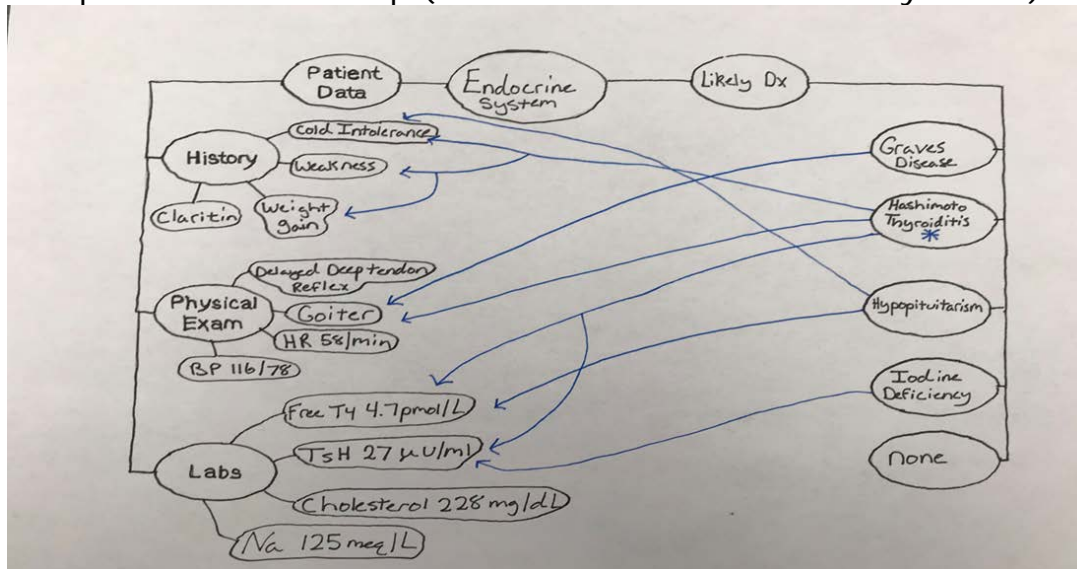 Patient
Data
Endocrine
System
Likely Dx
History
Cold Intolerance
Weakness
Weight
gain
Claritin
Physical
Exam
Delayed Deep tendon
Reflex
Goiter
HR 58/min
BP 116/78
Labs
Free T4 4.7pmol/L
TSH 27 μU/ml
Cholesterol 228 mg/dL
Na 125 meq/L
Graves
Disease
Hashimoto
Thyroiditis
*
Hypopituitarism
Iodine
Deficiency
none